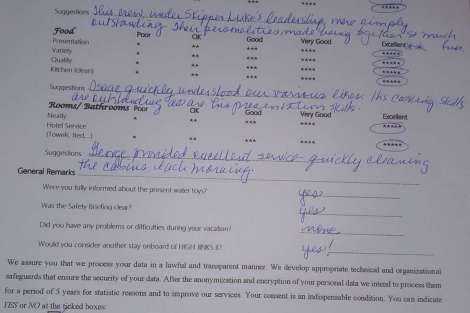 **** *****
Suggestions This crew, under Skipper Luke's leadership, were simply
outstanding. Their personalities made being together so much fun.
Food Poor OK Good Very Good Excellent
Presentation * ** *** **** *****
Variety * ** *** **** *****
Quality * ** *** **** *****
Kitchen (clean) * ** *** **** *****
Suggestions quickly understood our various likes. His cooking skills
are outstanding as are his presentation skills.
Rooms/ Bathrooms Poor OK Good Very Good Excellent
Neatly * ** *** **** *****
Hotel Service
(Towels, Bed...) * ** *** **** *****
Suggestions George provided excellent service - quickly cleaning
the cabins each morning.
General Remarks
Were you fully informed about the present water toys? yes
Was the Safety Briefing clear? yes
Did you have any problems or difficulties during your vacation? none
Would you consider another stay onboard of HIGH JINKS II? yes!
We assure you that we process your data in a lawful and transparent manner. We develop appropriate technical and organizational
safeguards that ensure the security of your data. After the anonymization and encryption of your personal data we intend to process them
for a period of 5 years for statistic reasons and to improve our services. Your consent is an indispensable condition. You can indicate
YES or NO at the ticked boxes: